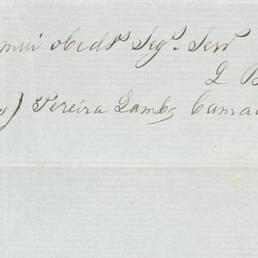 mui obed.ᵉ Seg.º Serv
L B
) Pereira Lamb, Cama